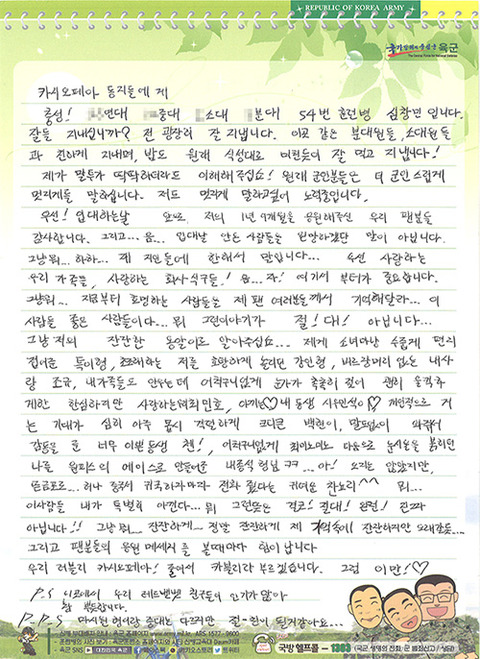 REPUBLIC OF KOREA ARMY
육군
카시오페아 동지들에게
충성! 연대 중대 소대 분대 54번 훈련병 심창민입니다.
잘들 지내십니까? 전 굉장히 잘 지냅니다. 이곳 같은 분대원들, 소대원들
과 친하게 지내며, 밥도 원래 식성대로 미련듯이 잘 먹고 지냅니다!
제가 말투가 딱딱하더라도 이해해주십쇼! 원래 군인분들은 더 군인스럽게
멋지게들 말하십니다. 저도 멋지게 말하고싶어 노력중입니다.
우선! 입대하는날 저의 1년 9개월을 응원해주신 우리 팬분들
감사합니다. 그리고... 음... 입대날 안온 사람들을 원망하겠단 말이 아닙니다.
그냥 뭐... 하하... 제 지인들에 한해서 말입니다... 우선 사랑하는
우리 가족들, 사랑하는 회사식구들! 음... 자! 여기서부터가 중요합니다.
그냥 뭐... 지금부터 호명하는 사람들은 제 팬 여러분들께서 기억해달라... 이
사람들 좋은 사람들이다... 뭐 그런이야기가 절! 대! 아닙니다...
그냥 저의 잔잔한 동안이로 알아주십쇼... 제게 소녀마냥 수줍게 편지
접어준 특이형, 초조해하는 저를 호탕하게 놀리던 강인형, 버르장머리 없는 내사
랑 조규, 내가족들도 안우는데 어처구니없게 눈가가 촉촉히 젖어 괜히 울적하
게한 한심하지만 사랑하는 최민호, 아끼는♡내 동생 시우민씨이♡ 개인적으로 거
는 기대가 심히 아주 몹시 격렬하게 크디큰 백현이, 말도없이 와줘서
감동을 준 너무 이쁜동생 첸!, 어처구니없게 최미노미노 다음으로 눈시울을 붉히던
나를 원피스의 에이스로 만들어준 내종석 형님 ㅋㅋ ...아! 오지는 않았지만,
뜬금포로... 하나 중국서 귀국하자마자 전화 줬다는 귀여운 찬노리^^ 뭐...
이사람들 내가 특별히 아낀다... 뭐 그런뜻은 결코! 절대! 완전! 진짜
아닙니다!! 그냥 뭐... 잔잔하게... 정말 잔잔하게 제 기억속에 잔잔하지만 오래갈듯...
그리고 팬분들의 응원 메세지를 볼때마다 힘이 납니다
우리 러블리 카시오페아! 줄여서 카블리라 부르겠습니다. 그럼 이만!♡
P.S 여기에서 우리 레드벨벳 친구들이 인기가 많아
참 뿌듯합니다.
P.P.S 마시런 병아리 중대는 다크지만 질-한이 된거같아요...
국방헬프콜 - 1303 (국군 생명의 전화 / 군 범죄신고 / 상담)